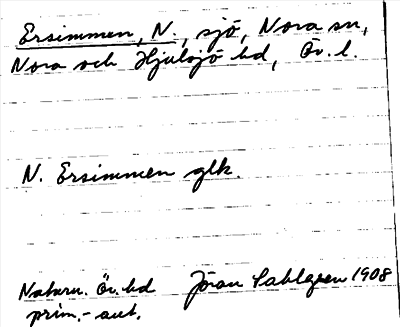 Ersimmen, N., sjö, Nora sn,
Nora och Hjulsjö hd, Ör. l.
N. Ersimmen glk.
Naturn. Ör. hd Jöran Sahlgren 1908
prim.-ant.